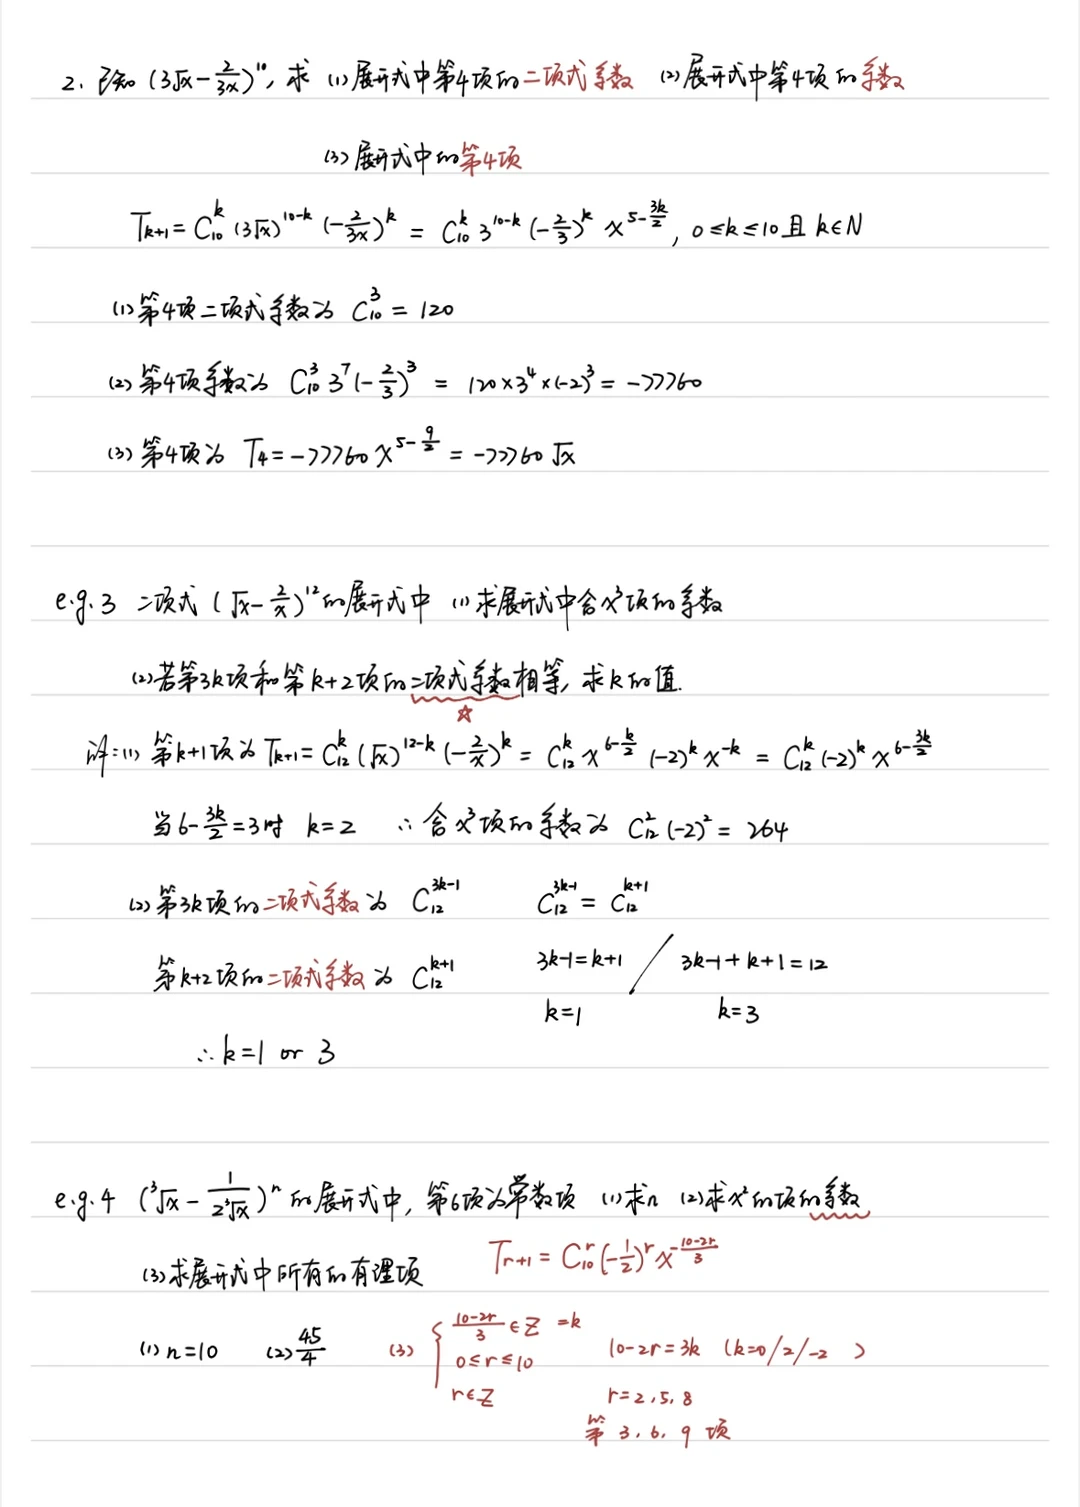 2. 已知 (3√x - 2/3x)^10, 求 (1)展开式中第4项的二项式系数 (2)展开式中第4项的系数
(3)展开式中的第4项
T_{k+1} = C_{10}^{k} (3√x)^{10-k} (-2/3x)^k = C_{10}^{k} 3^{10-k} (-2/3)^k x^{5-3k/2}, 0≤k≤10且 k∈N
(1)第4项二项式系数为 C_{10}^{3} = 120
(2)第4项系数为 C_{10}^{3} 3^7 (-2/3)^3 = 120×3^4×(-2)^3 = -77760
(3)第4项为 T_4 = -77760 x^{5-9/2} = -77760 √x
e.g.3 二项式 (√x - 2/x)^12 的展开式中 (1)求展开式中含x^3项的系数
(2)若第3k项和第k+2项的二项式系数相等, 求k的值.
☆
解:(1) 第k+1项为 T_{k+1} = C_{12}^{k} (√x)^{12-k} (-2/x)^k = C_{12}^{k} x^{6-k/2} (-2)^k x^{-k} = C_{12}^{k} (-2)^k x^{6-3k/2}
当 6-3k/2=3时 k=2 ∴含x^3项的系数为 C_{12}^{2} (-2)^2 = 264
(2)第3k项的二项式系数为 C_{12}^{3k-1} C_{12}^{3k-1} = C_{12}^{k+1}
第k+2项的二项式系数为 C_{12}^{k+1} 3k-1=k+1 / 3k-1+k+1=12
k=1 k=3
∴k=1 or 3
e.g.4 (³√x - 1/2³√x)^n 的展开式中, 第6项为常数项 (1)求n (2)求x^2的项的系数
(3)求展开式中所有的有理项 T_{r+1} = C_{10}^{r} (-1/2)^r x^{10-2r/3}
(1) n=10 (2) 45/4 (3) { 10-2r/3 ∈Z =k
0≤r≤10 10-2r=3k (k=0/2/-2 )
r∈Z r=2,5,8
第 3,6,9 项